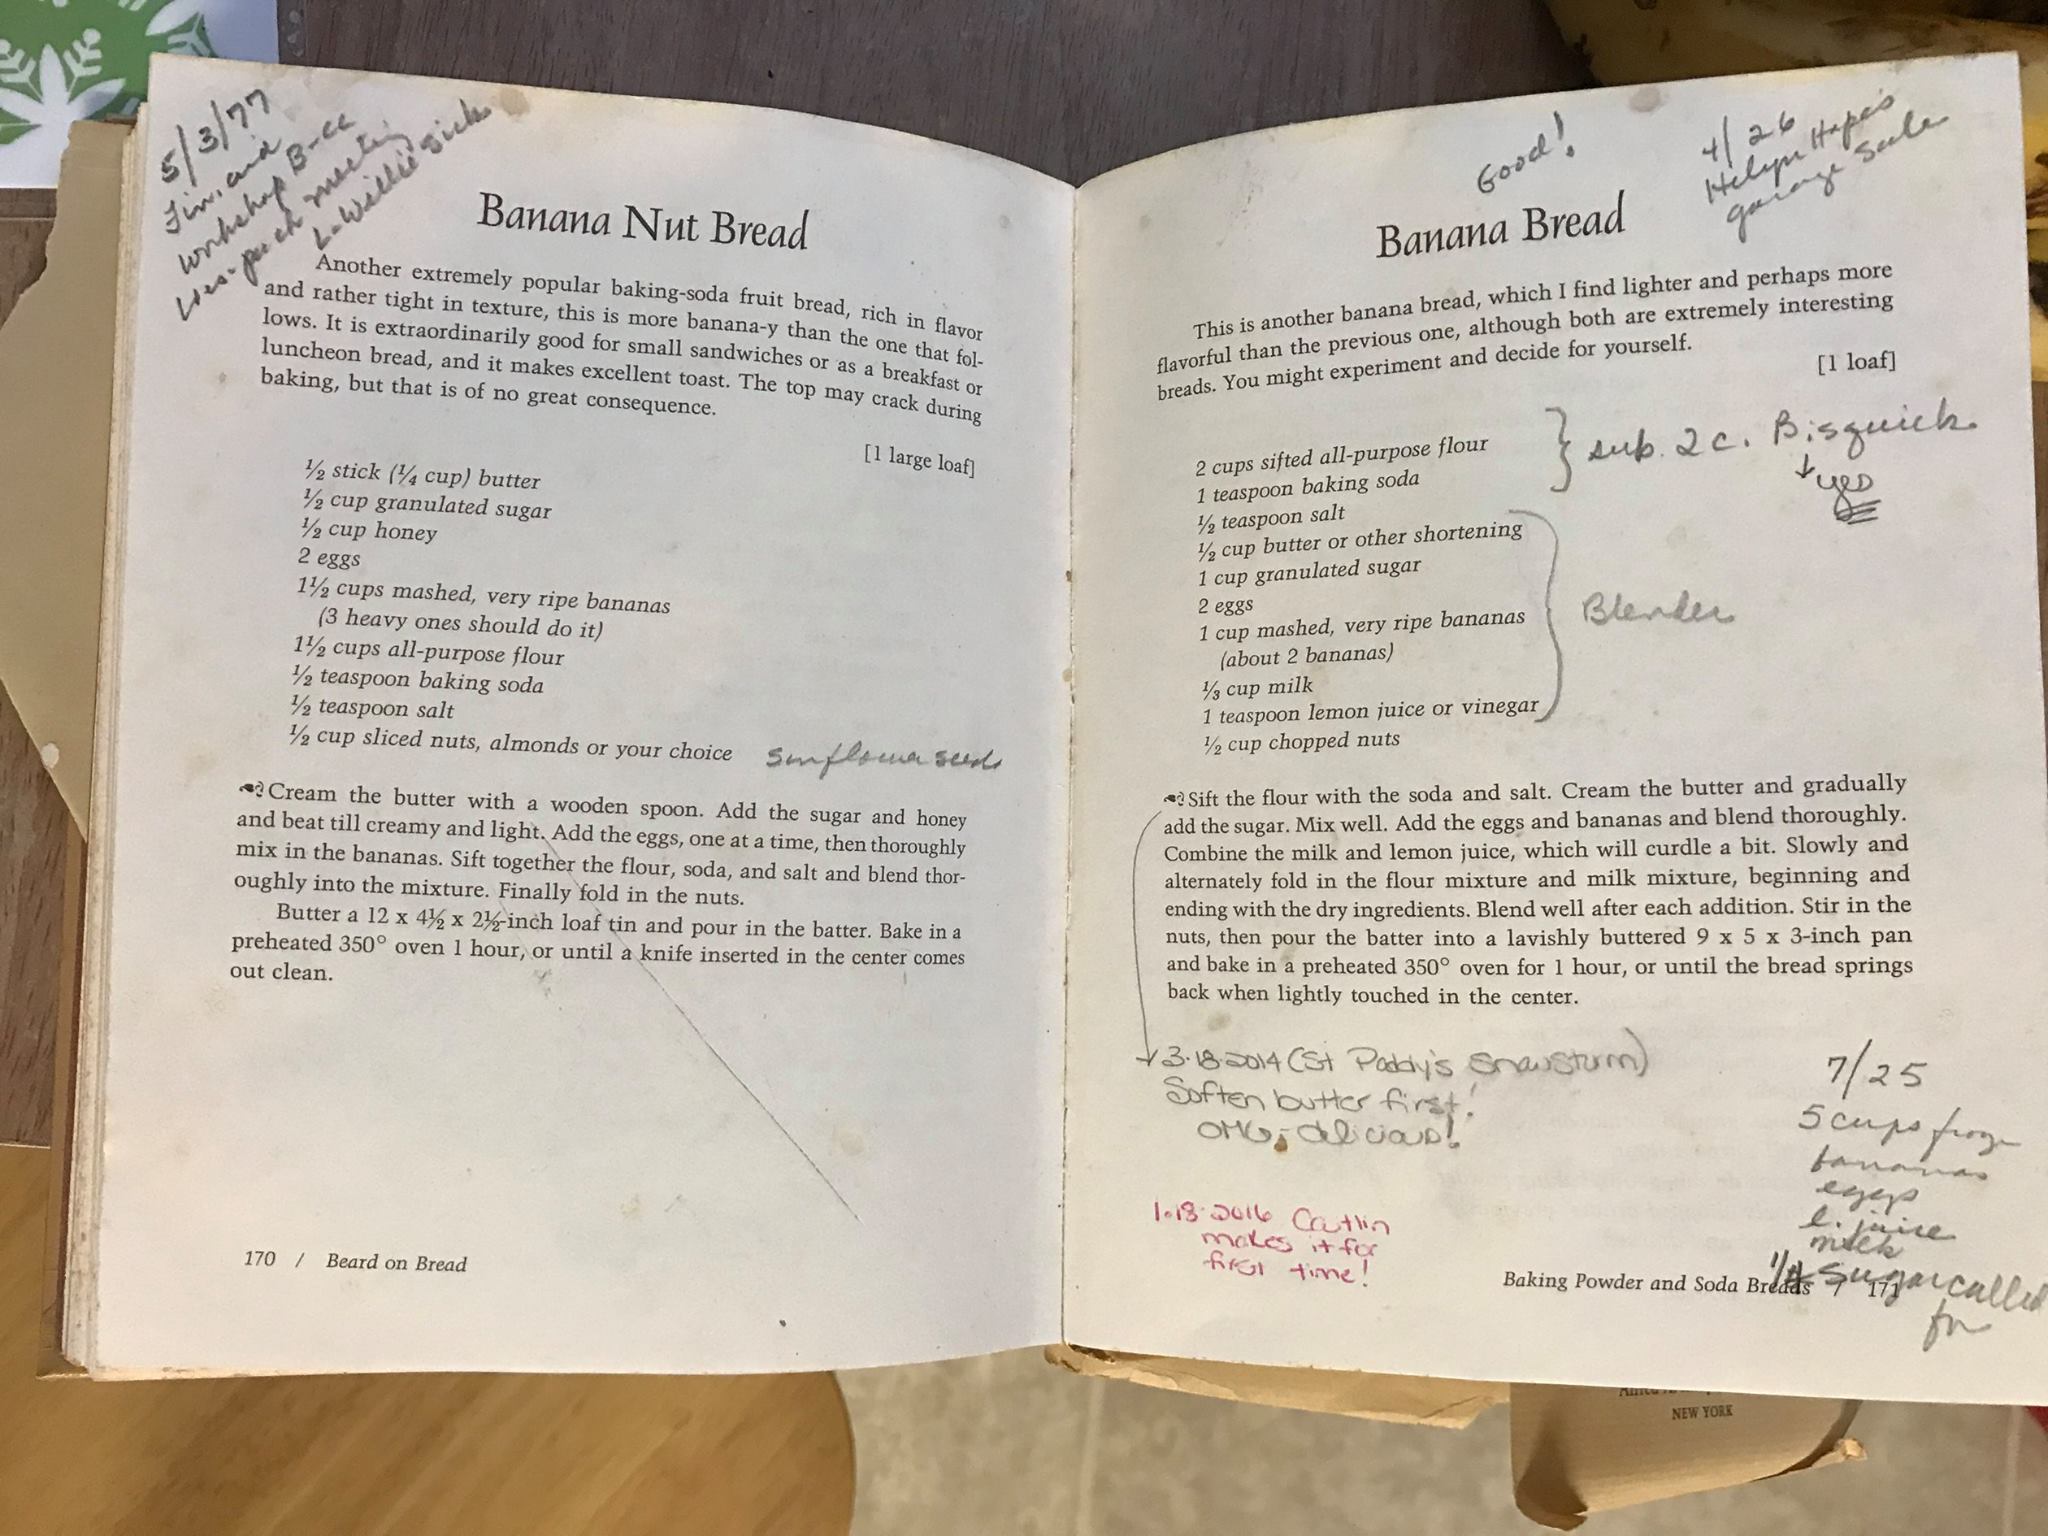 5/3/77
Fin. and
workshop B-cc
meeting
L-Willie Sick
Banana Nut Bread
Another extremely popular baking-soda fruit bread, rich in flavor
and rather tight in texture, this is more banana-y than the one that fol-
lows. It is extraordinarily good for small sandwiches or as a breakfast or
luncheon bread, and it makes excellent toast. The top may crack during
baking, but that is of no great consequence.
[1 large loaf]
½ stick (¼ cup) butter
½ cup granulated sugar
½ cup honey
2 eggs
1½ cups mashed, very ripe bananas
(3 heavy ones should do it)
1½ cups all-purpose flour
½ teaspoon baking soda
½ teaspoon salt
½ cup sliced nuts, almonds or your choice sunflower seeds
Cream the butter with a wooden spoon. Add the sugar and honey
and beat till creamy and light. Add the eggs, one at a time, then thoroughly
mix in the bananas. Sift together the flour, soda, and salt and blend thor-
oughly into the mixture. Finally fold in the nuts.
Butter a 12 x 4½ x 2½-inch loaf tin and pour in the batter. Bake in a
preheated 350° oven 1 hour, or until a knife inserted in the center comes
out clean.
170 / Beard on Bread
Good!
4/26
Helyn Hape's
garage sale
Banana Bread
This is another banana bread, which I find lighter and perhaps more
flavorful than the previous one, although both are extremely interesting
breads. You might experiment and decide for yourself.
[1 loaf]
2 cups sifted all-purpose flour
1 teaspoon baking soda
½ teaspoon salt
sub. 2 c. Bisquick
yes
½ cup butter or other shortening
1 cup granulated sugar
2 eggs
1 cup mashed, very ripe bananas
(about 2 bananas)
⅓ cup milk
1 teaspoon lemon juice or vinegar
Blender
½ cup chopped nuts
Sift the flour with the soda and salt. Cream the butter and gradually
add the sugar. Mix well. Add the eggs and bananas and blend thoroughly.
Combine the milk and lemon juice, which will curdle a bit. Slowly and
alternately fold in the flour mixture and milk mixture, beginning and
ending with the dry ingredients. Blend well after each addition. Stir in the
nuts, then pour the batter into a lavishly buttered 9 x 5 x 3-inch pan
and bake in a preheated 350° oven for 1 hour, or until the bread springs
back when lightly touched in the center.
3·18·2014 (St Paddy's snowstorm)
Soften butter first!
OMG, delicious!
1·18·2016 Caitlin
makes it for
first time!
7/25
5 cups froze
bananas
eggs
l. juice
milk
sugar called
for
Baking Powder and Soda Breads / 171
NEW YORK